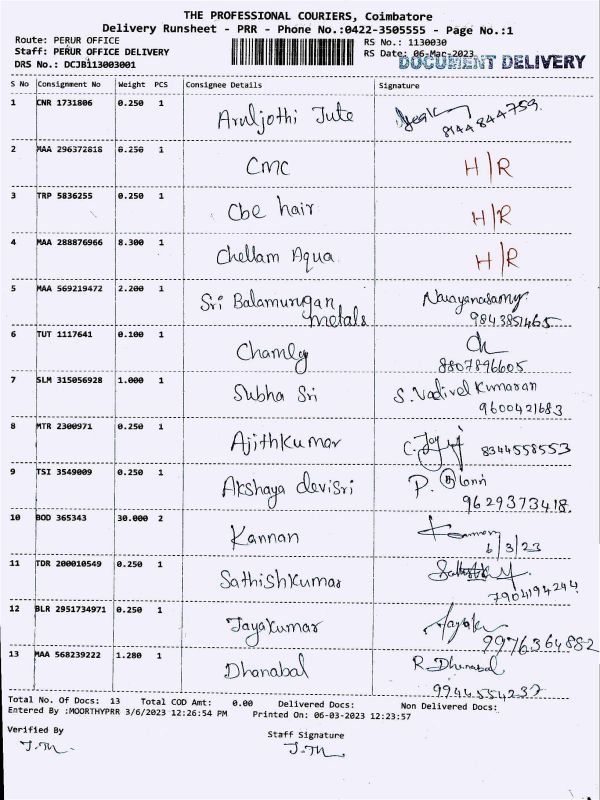 THE PROFESSIONAL COURIERS, Coimbatore
Delivery Runsheet - PRR - Phone No.:0422-3505555 - Page No.:1
Route: PERUR OFFICE RS No.: 1130030
Staff: PERUR OFFICE DELIVERY RS Date: 06-Mar-2023
DOCUMENT DELIVERY
DRS No.: DCJB113003001
S No Consignment No Weight PCS Consignee Details Signature
1 CNR 1731806 0.250 1 Aruljothi Jute 8144844759.
2 MAA 296372818 0.250 1 CMC H/R
3 TRP 5836255 0.250 1 Cbe hair H/R
4 MAA 288876966 8.300 1 Chellam Aqua H/R
5 MAA 569219472 2.200 1 Sri Balamurugan Narayanasamy.
metals 9843851465
6 TUT 1117641 0.100 1 Chamly Ch
8807896605
7 SLM 315056928 1.000 1 Subha Sri S. Vadivel Kumaran
9600421683
8 MTR 2300971 0.250 1 Ajithkumar 8344558553
9 TSI 3549009 0.250 1 Akshaya devisri P.
9629373418.
10 BOD 365343 30.000 2 Kannan Kannan
6/3/23
11 TDR 200010549 0.250 1 Sathishkumar
7904194244
12 BLR 2951734971 0.250 1 Jayakumar
9976364882
13 MAA 568239222 1.280 1 Dhanabal R. Dhanabal
9944554237
Total No. Of Docs: 13 Total COD Amt: 0.00 Delivered Docs: Non Delivered Docs:
Entered By :MOORTHYPRR 3/6/2023 12:26:54 PM Printed On: 06-03-2023 12:23:57
Verified By Staff Signature